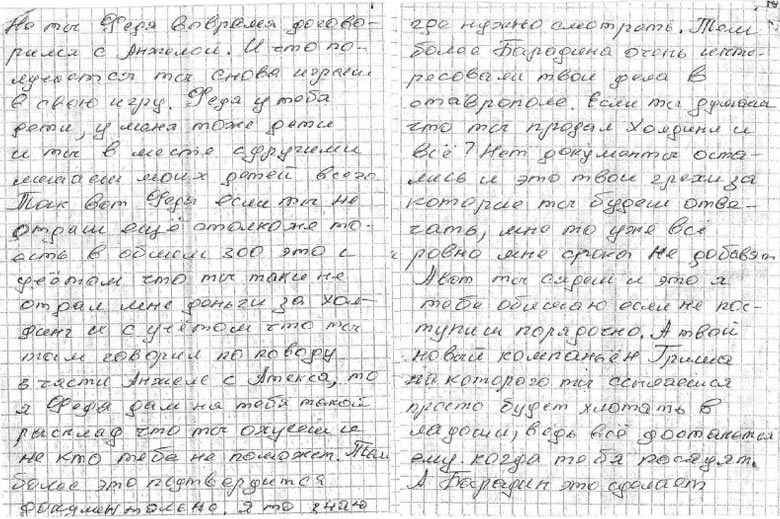 Но ты Федя вовремя догово-
рился с Анжелой. И что по-
лучается ты снова играеш
в свою игру. Федя у тебя
дети, у меня тоже дети
и ты в месте сдругими
лишаеш моих детей всего
Так вот Федя если ты не
отдаш ещё столькоже то-
есть в общем 300 это с
учётом что ты таки не
отдал мне деньги за хол-
динг и с учётом что ты
там говорил по поводу
з части Анжеле с Атекса, то
я Федя дам на тебя такой
расклад что ты охуееш и
не кто тебе не поможет. Тем
более это подтвердится
документально. я то знаю
где нужно смотреть. Тем
более Бородина очень инте-
ресовали твои дела в
ставрополе. Если ты думаеш
что ты продал Холдинг и
всё? Нет документы оста-
лись и это твои грехи за
которые ты будеш отве-
чать, мне то уже всё
ровно мне срока не добавят
А вот ты сядеш и это я
тебе обещаю если не пос-
тупиш порядочно. А твой
новый компаньён Гриша
на которого ты ссылаешся
просто будет хлопать в
ладоши, ведь всё достанется
ему когда тебя посадят.
А Бородин это сделает